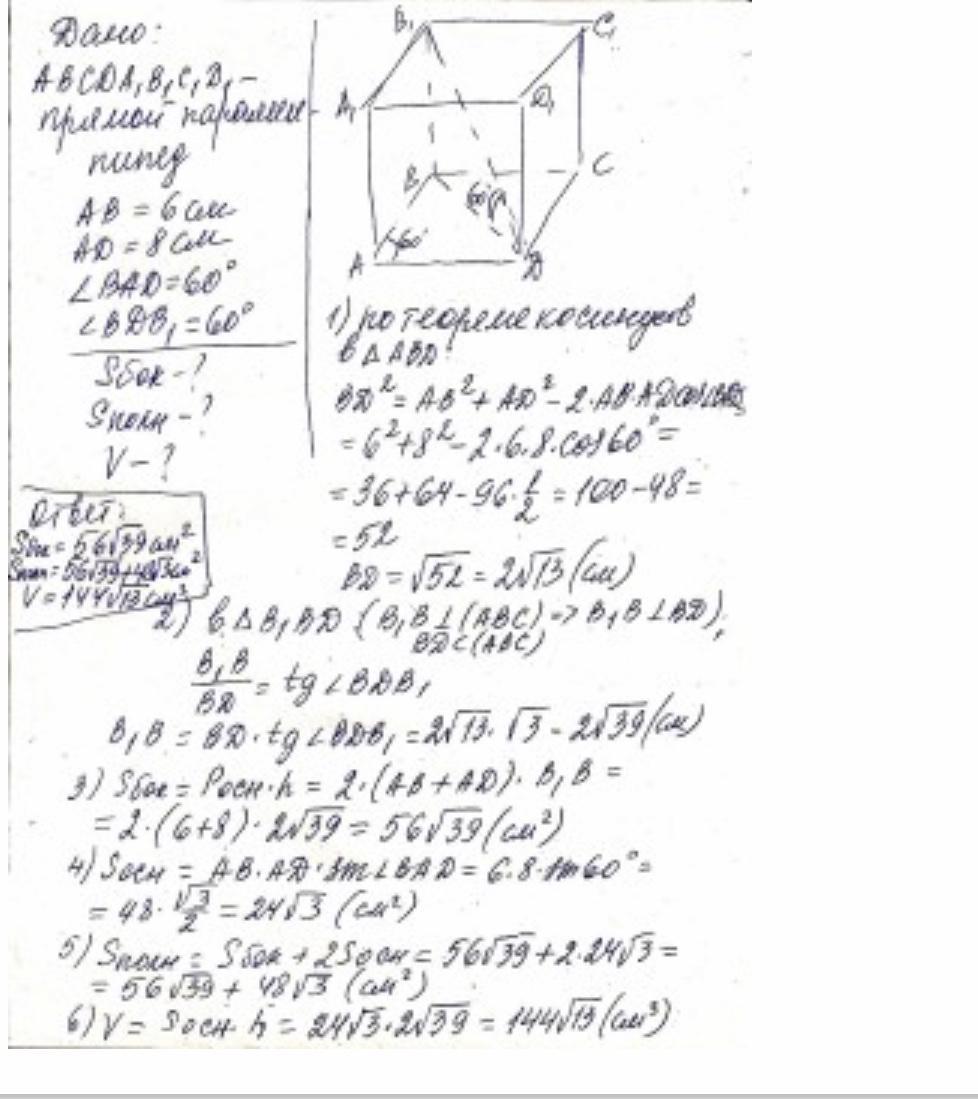 Дано:
ABCDA₁B₁C₁D₁ –
прямой параллеле-
пипед
AB = 6 см
AD = 8 см
∠BAD = 60°
∠BDB₁ = 60°
Sбок - ?
Sполн - ?
V - ?
Ответ:
Sбок = 56√39 см²
Sполн = 56√39+48√3 см²
V = 144√13 см³
B₁
C₁
A₁
D₁
B
C
60°
60°
A
D
1) по теореме косинусов
в △ABD:
BD² = AB² + AD² - 2·AB·AD cos∠BAD
= 6² + 8² - 2·6·8·cos60° =
= 36 + 64 - 96·1/2 = 100 - 48 =
= 52
BD = √52 = 2√13 (см)
2) в △B₁BD (B₁B⊥(ABC) => B₁B⊥BD),
BD⊂(ABC)
B₁B/BD = tg∠BDB₁
B₁B = BD·tg∠BDB₁ = 2√13·√3 = 2√39 (см)
3) Sбок = Pосн·h = 2·(AB + AD)·B₁B =
= 2·(6+8)·2√39 = 56√39 (см²)
4) Sосн = AB·AD·sin∠BAD = 6·8·sin60° =
= 48·√3/2 = 24√3 (см²)
5) Sполн = Sбок + 2Sосн = 56√39 + 2·24√3 =
= 56√39 + 48√3 (см²)
6) V = Sосн·h = 24√3·2√39 = 144√13 (см³)